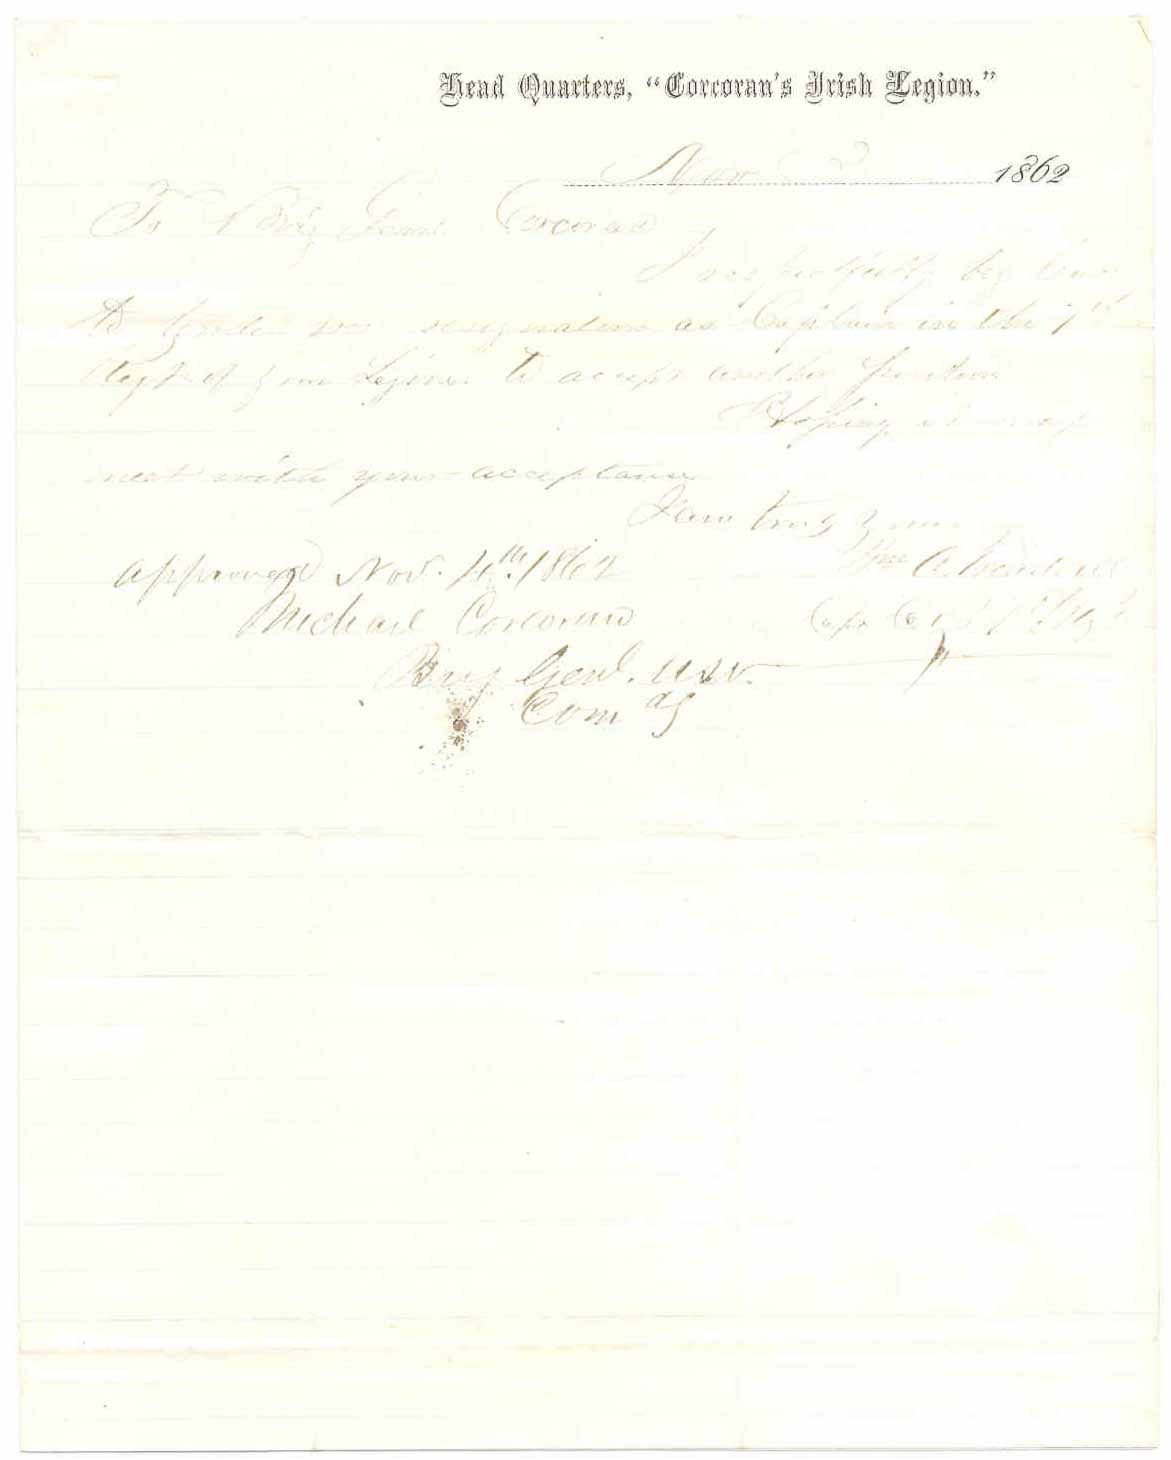 Head Quarters, "Corcoran's Irish Legion."
Nov 3 1862
To Brig Genl. Corcoran
I respectfully beg leave
to tender my resignation as Captain in the 1st
Regt of your Legion to accept another position
Hoping it may
meet with your acceptance
I am truly yours
approved Nov. 4th. 1862 Wm A.
Michael Corcoran Capt Co 1st Regt
Brig Genl. USV.
Comdg